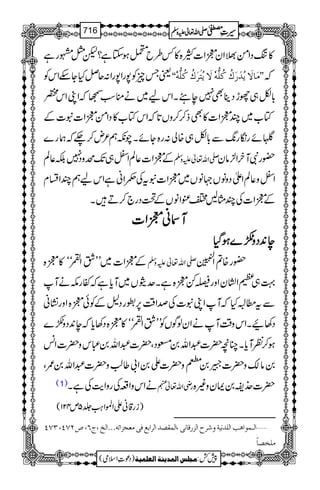 سیرتِ مصطفی صلی اللہ تعالیٰ علیہ وسلم 716
کا تنگ دامن بھلا ان معجزات کثیرہ کا کس طرح متحمل ہوسکتا ہے؟ لیکن مثل مشہور ہے
کہ ”مَالَا یُدْرَكُ كُلُّہٗ لَا یُتْرَكُ كُلُّہٗ“ یعنی جس چیز کو پورا پورا نہ حاصل کیا جاسکے اس کو
بالکل ہی چھوڑ دینا بھی نہیں چاہئے۔ اس لیے میں نے مناسب سمجھا کہ اپنی اس مختصر
کتاب میں چند معجزات کا بھی ذکر کردوں تاکہ اس کتاب کا دامن معجزات نبوت کے
گلہائے رنگارنگ سے بالکل ہی خالی نہ رہ جائے۔ چونکہ ہم عرض کرچکے کہ ہمارے
حضور نبی آخرالزماں صلی اللہ تعالیٰ علیہ وسلم کے معجزات عالم اسفل ہی تک محدود نہیں بلکہ عالم
اسفل و عالم اعلیٰ دونوں جہانوں میں معجزات نبویہ کی حکمرانی ہے اس لیے ہم چند اقسام
کے معجزات کی چند مثالیں مختلف عنوانوں کے تحت درج کرتے ہیں۔
آسمانی معجزات
چاند دو ٹکڑے ہوگیا
حضور خاتم النبیین صلی اللہ تعالیٰ علیہ وسلم کے معجزات میں ”شق القمر“ کا معجزہ
بہت ہی عظیم الشان اور فیصلہ کن معجزہ ہے۔ حدیثوں میں آیا ہے کہ کفار مکہ نے آپ
سے یہ مطالبہ کیا کہ آپ اپنی نبوت کی صداقت پر بطور دلیل کے کوئی معجزہ اور نشانی
دکھائیے۔ اس وقت آپ نے ان لوگوں کو ”شق القمر“ کا معجزہ دکھایا کہ چاند دو ٹکڑے
ہوکر نظر آیا۔ چنانچہ حضرت عبداللہ بن مسعود، حضرت عبداللہ بن عباس و حضرت انس
بن مالک و حضرت جبیر بن مطعم و حضرت علی بن ابی طالب و حضرت عبداللہ بن عمر،
حضرت حذیفہ بن یمان وغیرہ رضی اللہ تعالیٰ عنہم نے اس واقعہ کی روایت کی ہے۔ (1)
(زرقانی علی المواہب جلد ۵ ص ۱۲۴)
......المواهب اللدنية و شرح الزرقانى ،المقصد الرابع فى معجزاته...الخ ،ج٦، ص ٤٧٢، ٤٧٣
ملخصاً
پیش کش: مجلس المدينة العلمية (دعوتِ اسلامی)